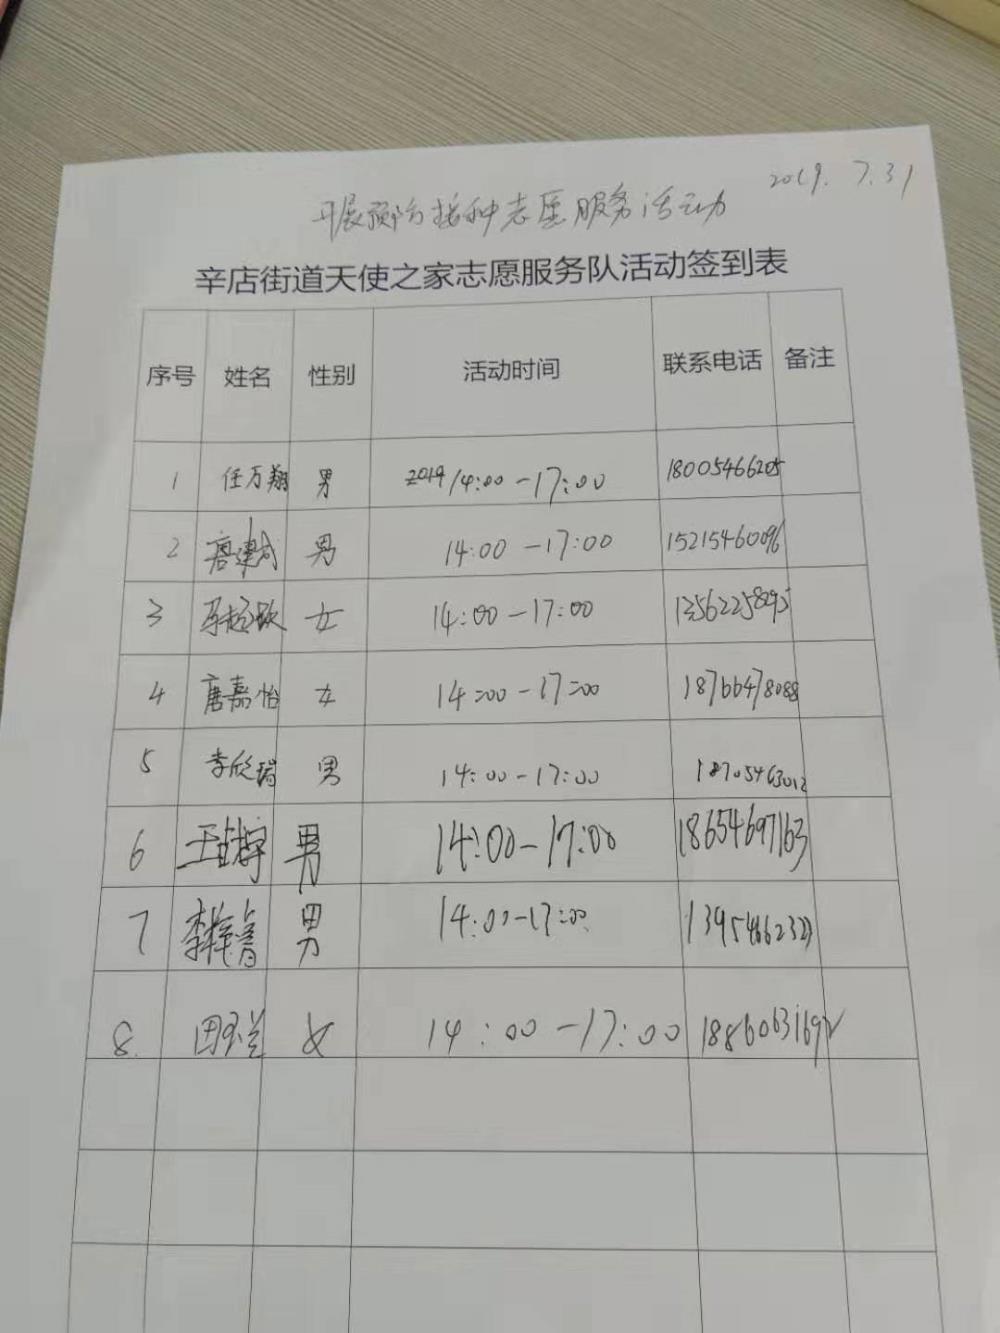 2019. 7.31
开展预防接种志愿服务活动
辛店街道天使之家志愿服务队活动签到表
序号 姓名 性别 活动时间 联系电话 备注
1 任万翔 男 2019 14:00-17:00 18005466205
2 唐建成 男 14:00-17:00 15215460096
3 女 14:00-17:00
4 唐嘉怡 女 14:00-17:00 18766478088
5 李欣瑞 男 14:00-17:00 18705463012
6 男 14:00-17:00 18654697163
7 男 14:00-17:00
8. 田玉兰 女 14:00-17:00